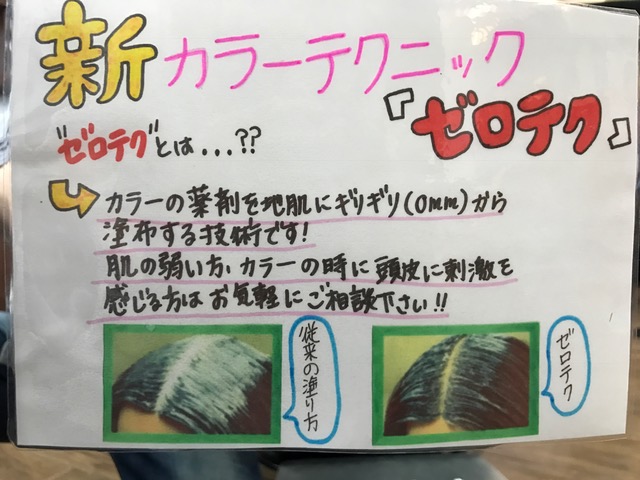 新カラーテクニック
『ゼロテク』
"ゼロテク"とは...??
カラーの薬剤を地肌にギリギリ(0mm)から
塗布する技術です!
肌の弱い方、カラーの時に頭皮に刺激を
感じる方はお気軽にご相談下さい!!
従来の塗り方
ゼロテク